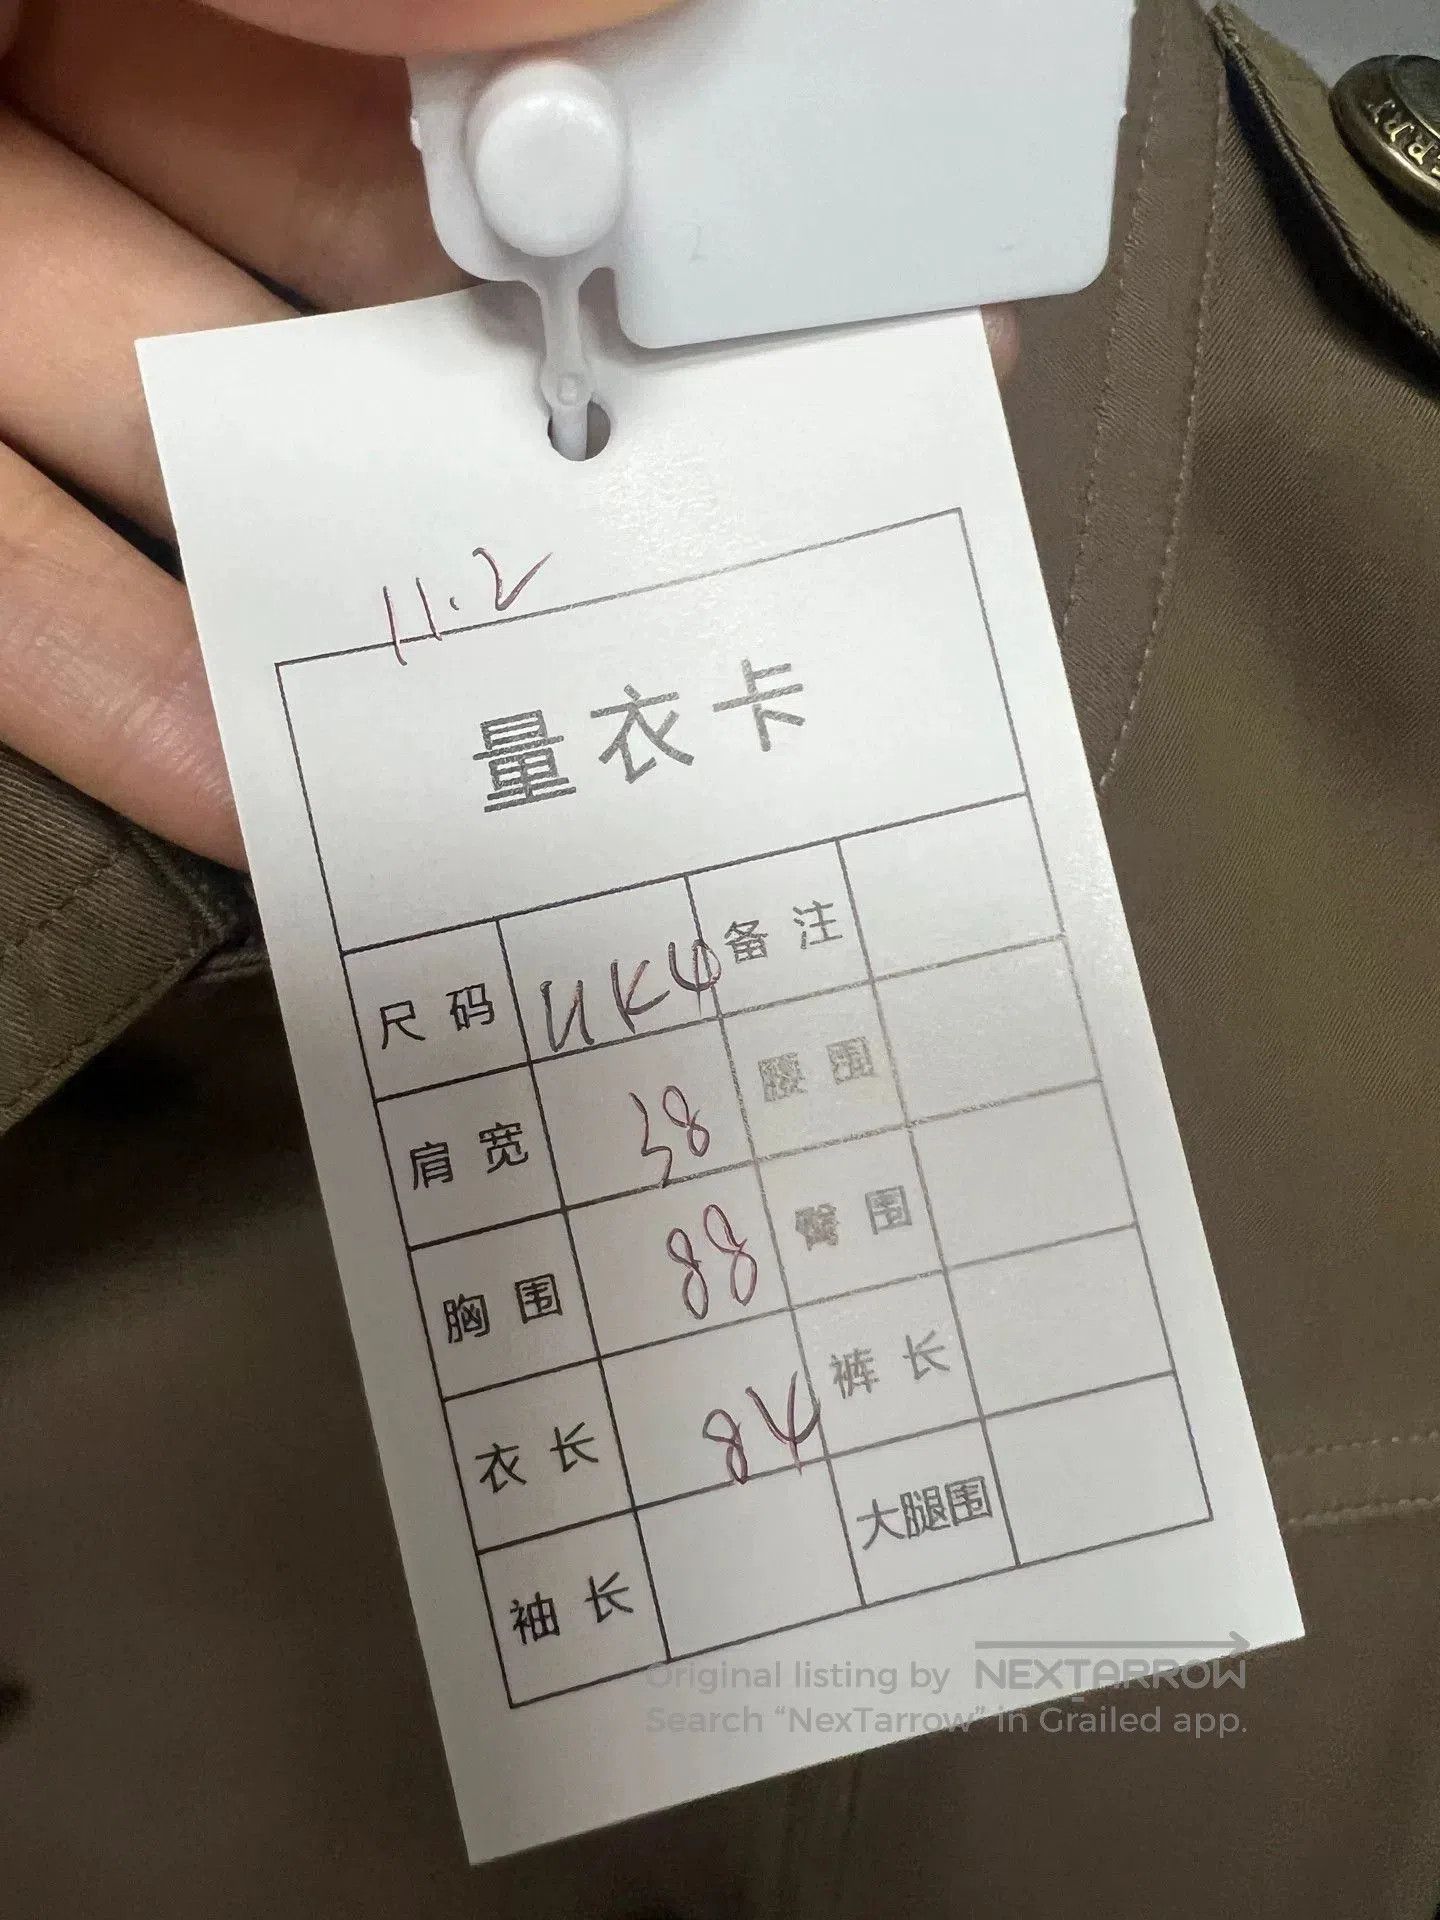 11.2
量衣卡
尺码 UK4 备注
肩宽 腰围
胸围 88 臀围
衣长 84 裤长
袖长 大腿围
Original listing by NEXTARROW
Search “NexTarrow” in Grailed app.